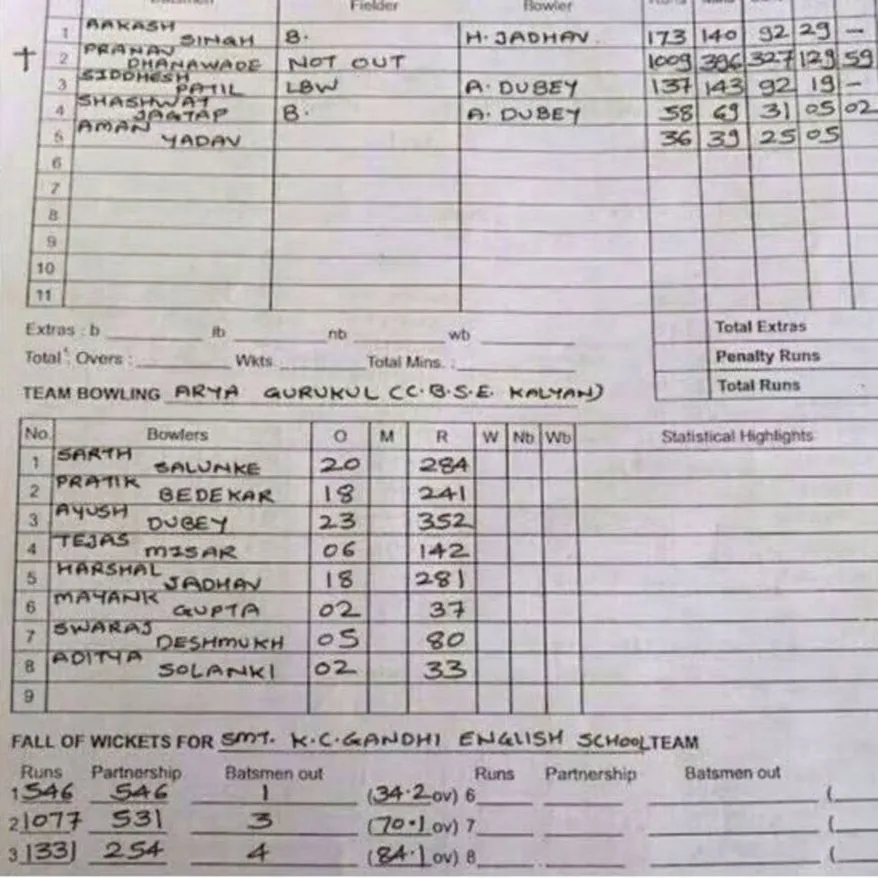 Fielder Bowler
1 AAKASH SINGH B. H. JADHAV 173 140 92 29 –
† 2 PRANAV DHANAWADE NOT OUT 1009 396 327 129 59
3 SIDDHESH PATIL LBW A. DUBEY 137 143 92 19 –
4 SHASHWAT JAGTAP B. A. DUBEY 58 69 31 05 02
5 AMAN YADAV 36 39 25 05
6
7
8
9
10
11
Extras : b lb nb wb Total Extras
Total : Overs : Wkts Total Mins. : Penalty Runs
Total Runs
TEAM BOWLING ARYA GURUKUL (C.B.S.E. KALYAN)
No. Bowlers O M R W Nb Wb Statistical Highlights
1 SARTH SALUNKE 20 284
2 PRATIK BEDEKAR 18 241
3 AYUSH DUBEY 23 352
4 TEJAS MISAR 06 142
5 HARSHAL JADHAV 18 281
6 MAYANK GUPTA 02 37
7 SWARAJ DESHMUKH 05 80
8 ADITYA SOLANKI 02 33
9
FALL OF WICKETS FOR SMT. K.C.GANDHI ENGLISH SCHOOL TEAM
Runs Partnership Batsmen out Runs Partnership Batsmen out
1 546 546 1 (34.2 ov) 6 (
2 1077 531 3 (70.1 ov) 7 (
3 1331 254 4 (84.1 ov) 8 (